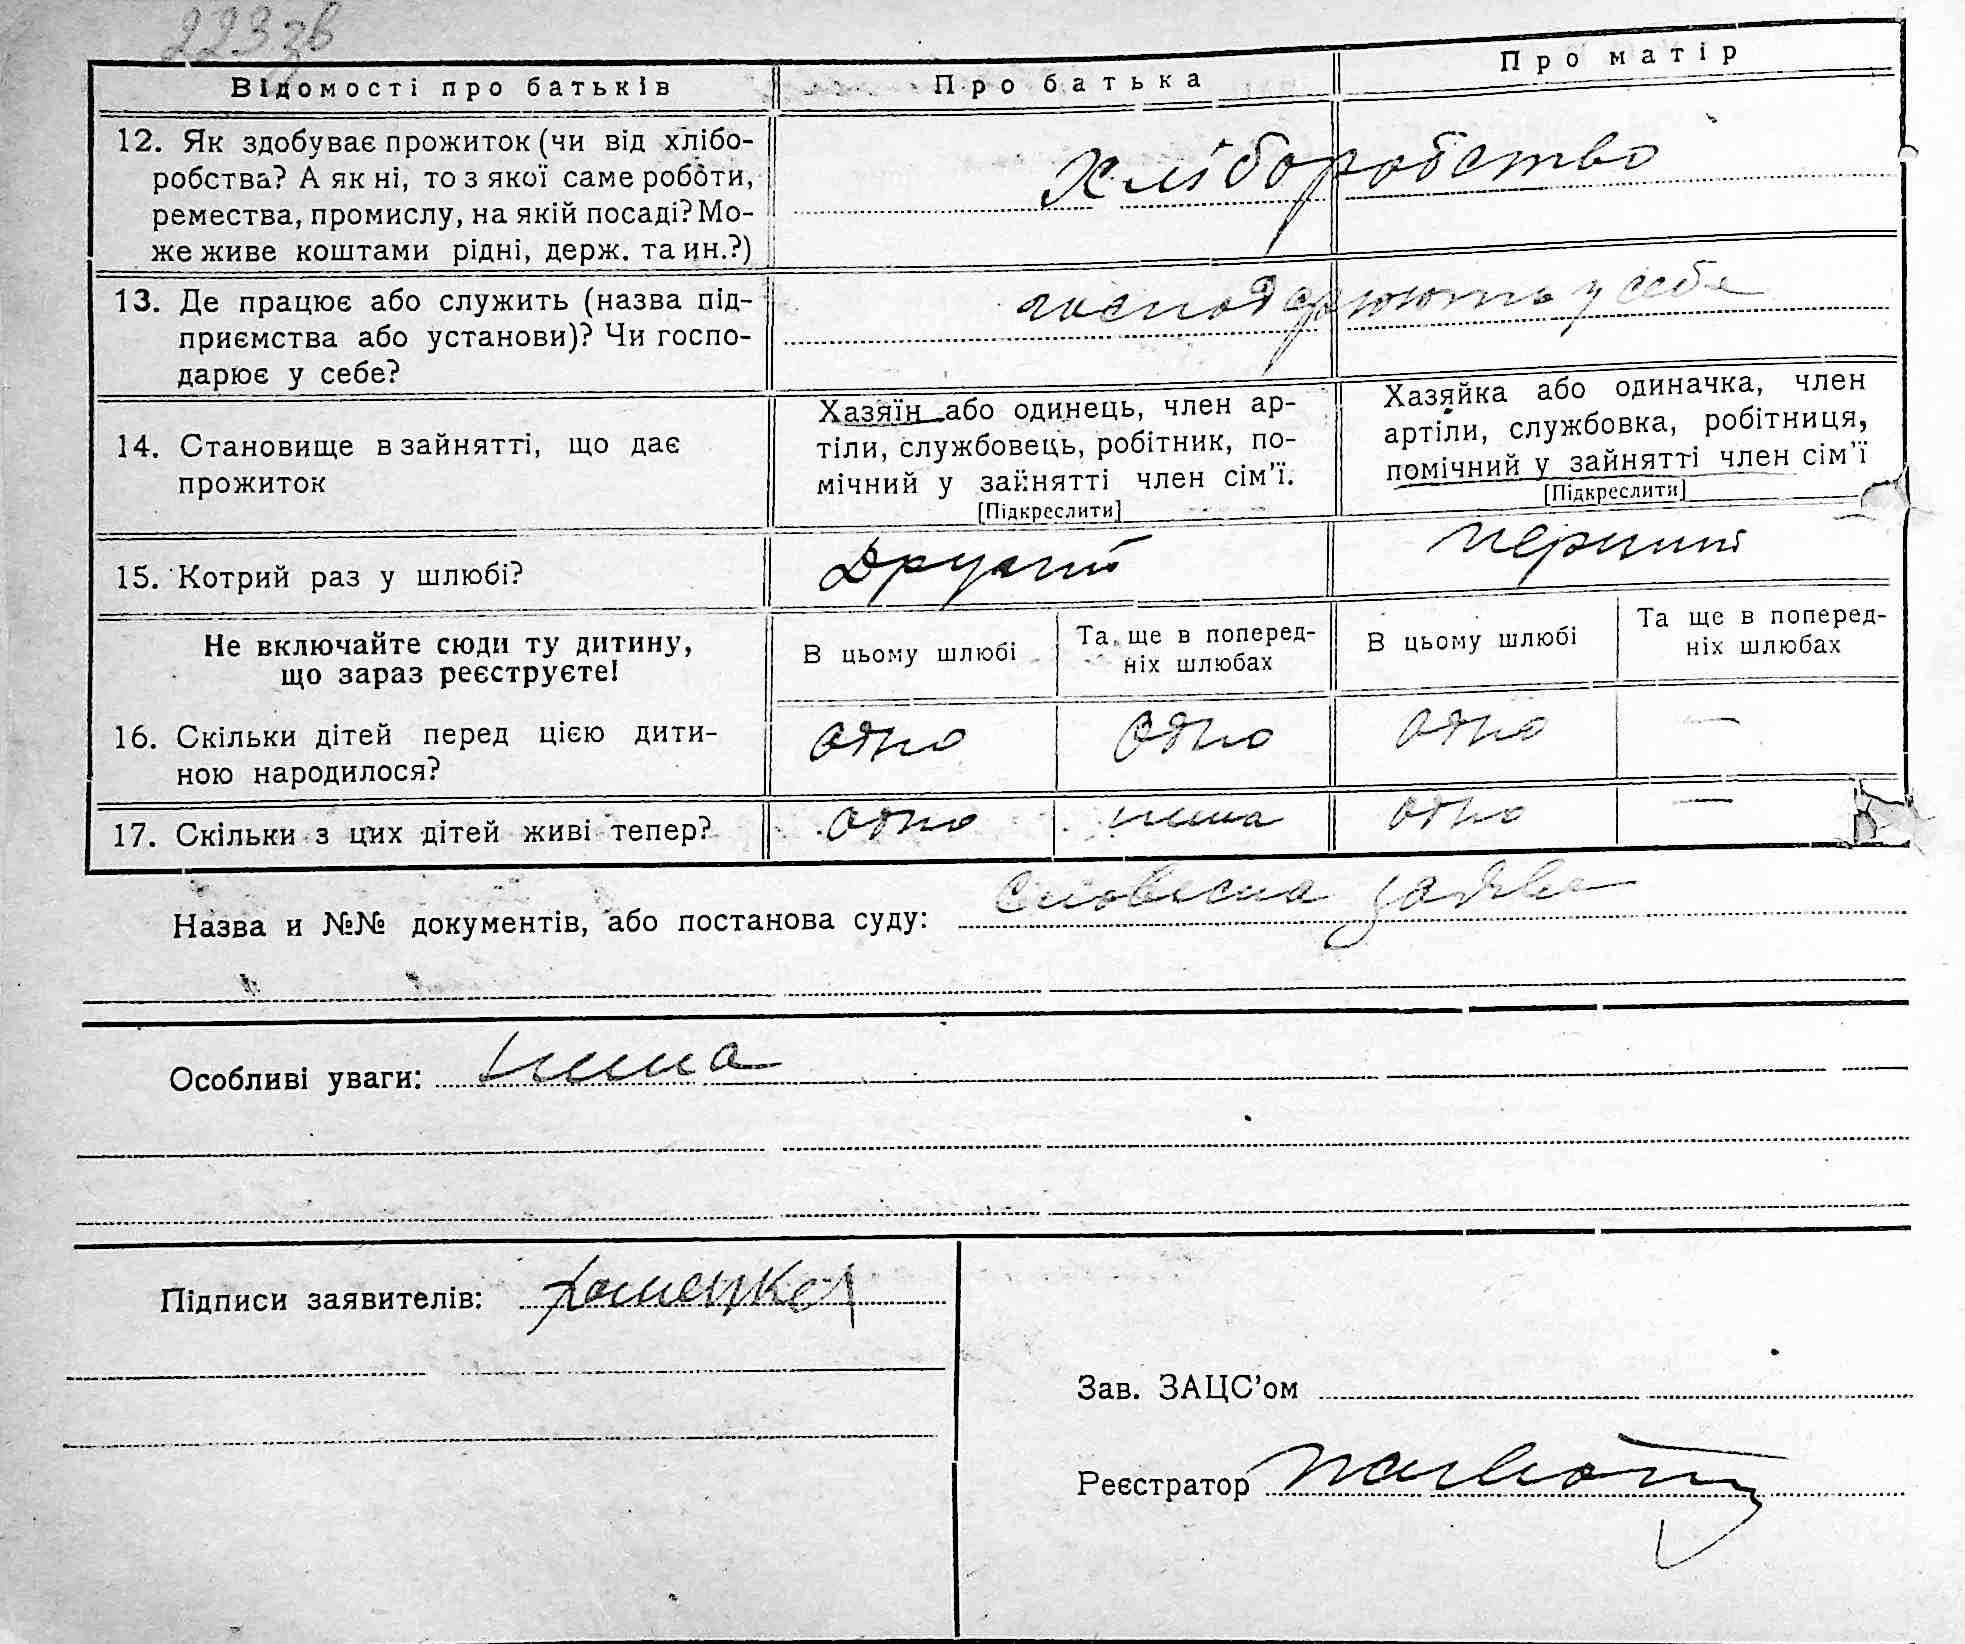 223 зв
Відомості про батьків
Про батька
Про матір
12. Як здобуває прожиток (чи від хлібо-
робства? А як ні, то з якої саме роботи,
ремества, промислу, на якій посаді? Мо-
же живе коштами рідні, держ. та ин.?)
Хліборобство
13. Де працює або служить (назва під-
приємства або установи)? Чи госпо-
дарює у себе?
господарюють у себе
14. Становище в зайнятті, що дає
прожиток
Хазяїн або одинець, член ар-
тіли, службовець, робітник, по-
мічний у зайнятті член сім'ї.
[Підкреслити]
Хазяйка або одиначка, член
артіли, службовка, робітниця,
помічний у зайнятті член сім'ї
[Підкреслити]
15. Котрий раз у шлюбі?
Другий
перший
Не включайте сюди ту дитину,
що зараз реєструєте!
В цьому шлюбі
Та ще в поперед-
ніх шлюбах
В цьому шлюбі
Та ще в поперед-
ніх шлюбах
16. Скільки дітей перед цією дити-
ною народилося?
одно
одно
одно
—
17. Скільки з цих дітей живі тепер?
одно
нима
одно
—
Назва и №№ документів, або постанова суду: Словесна заява
Особливі уваги: нима
Підписи заявителів:
Зав. ЗАЦС'ом
Реєстратор